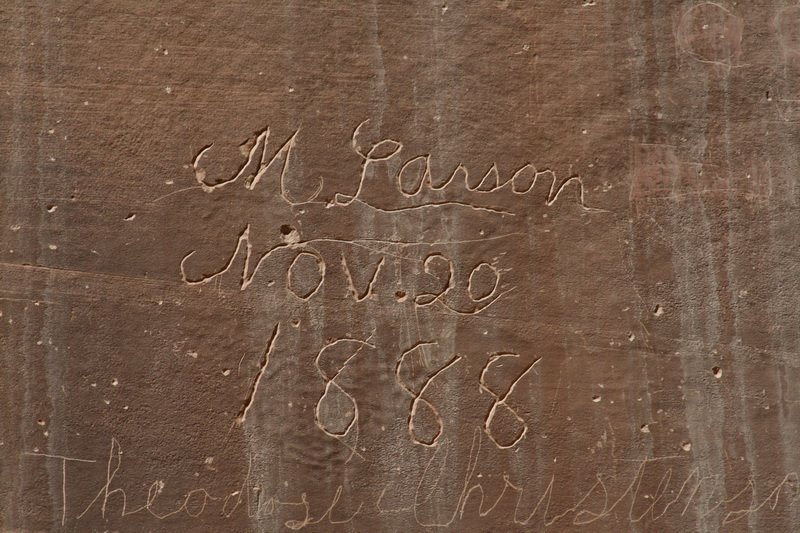 M Larson
Nov. 20
1888
Theodose Christensen